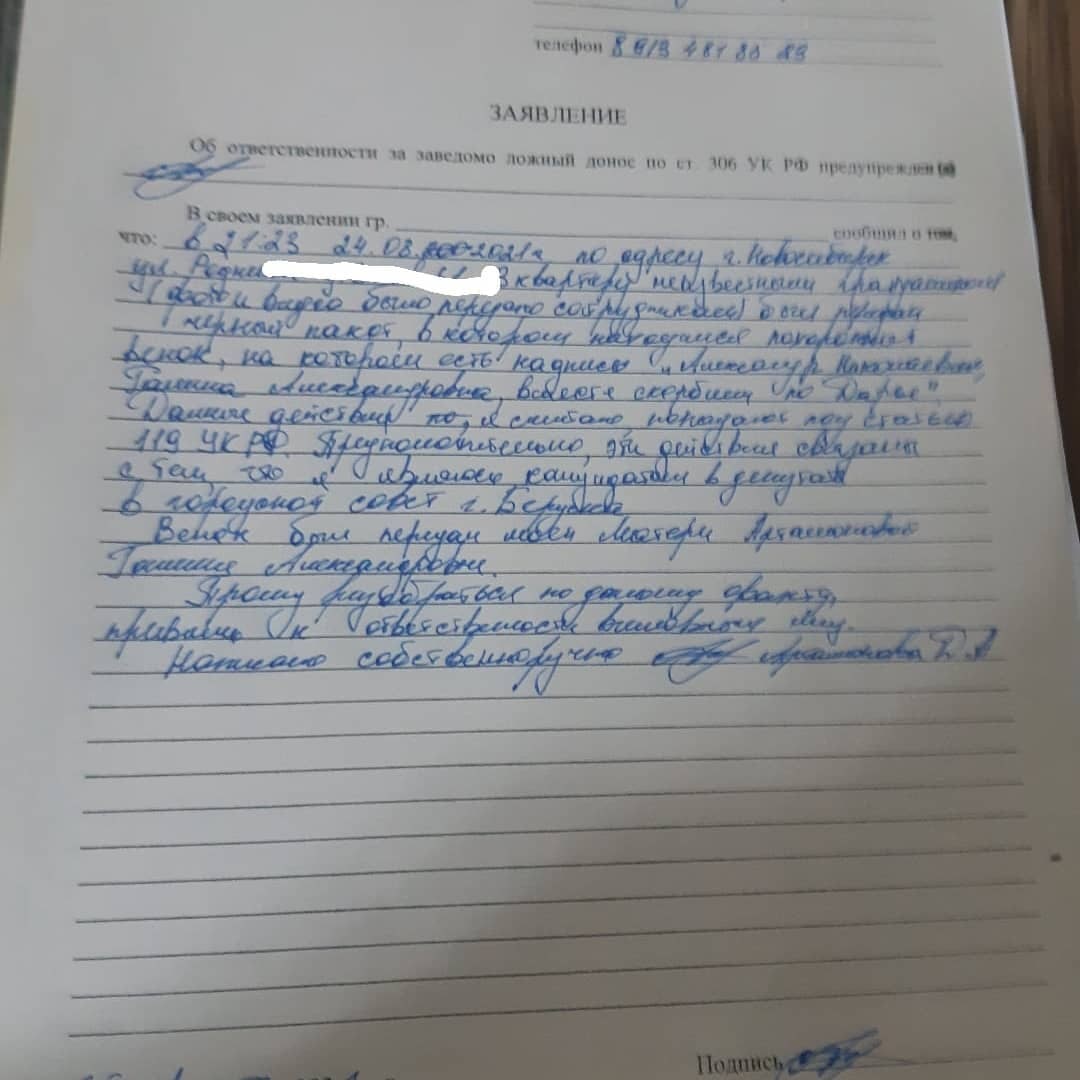 телефон 8 913 481 80 89
ЗАЯВЛЕНИЕ
Об ответственности за заведомо ложный донос по ст. 306 УК РФ предупрежден (а)
В своем заявлении гр. сообщил о том,
что: в 21:23 24.08. 2021г по адресу г. Новосибирск
ул. Родни 3 квартеру неизвестными гражданами
(фото и видео было передано сотрудникам) был передан
черный пакет, в котором находился похоронный
венок, на котором есть надпись "Александр Николаевич,
Галина Александровна, вместе скорбим по Дарье".
Данные действия по, я считаю, попадают под статью
119 УК РФ. Предположительно, эти действия связаны
с тем, что я являюсь кандидатом в депутаты
в городской совет г. Бердска
Венок был передан моей матери Артамоновой
Галине Александровне.
Прошу разобраться по данному факту,
привлечь к ответственности виновных лиц.
Написано собственноручно Артамонова Д. А
Подпись